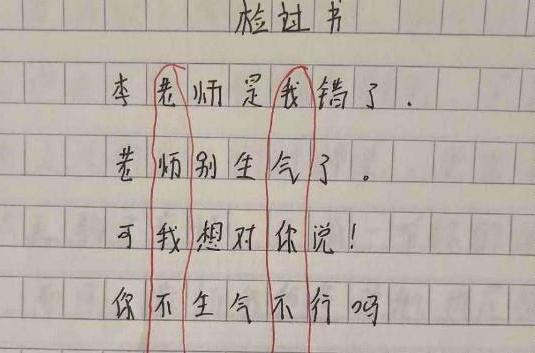 检过书
李老师是我错了.
老师别生气了。
可我想对你说!
你不生气不行吗